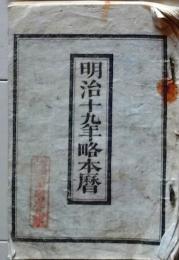 明治十九年略本暦